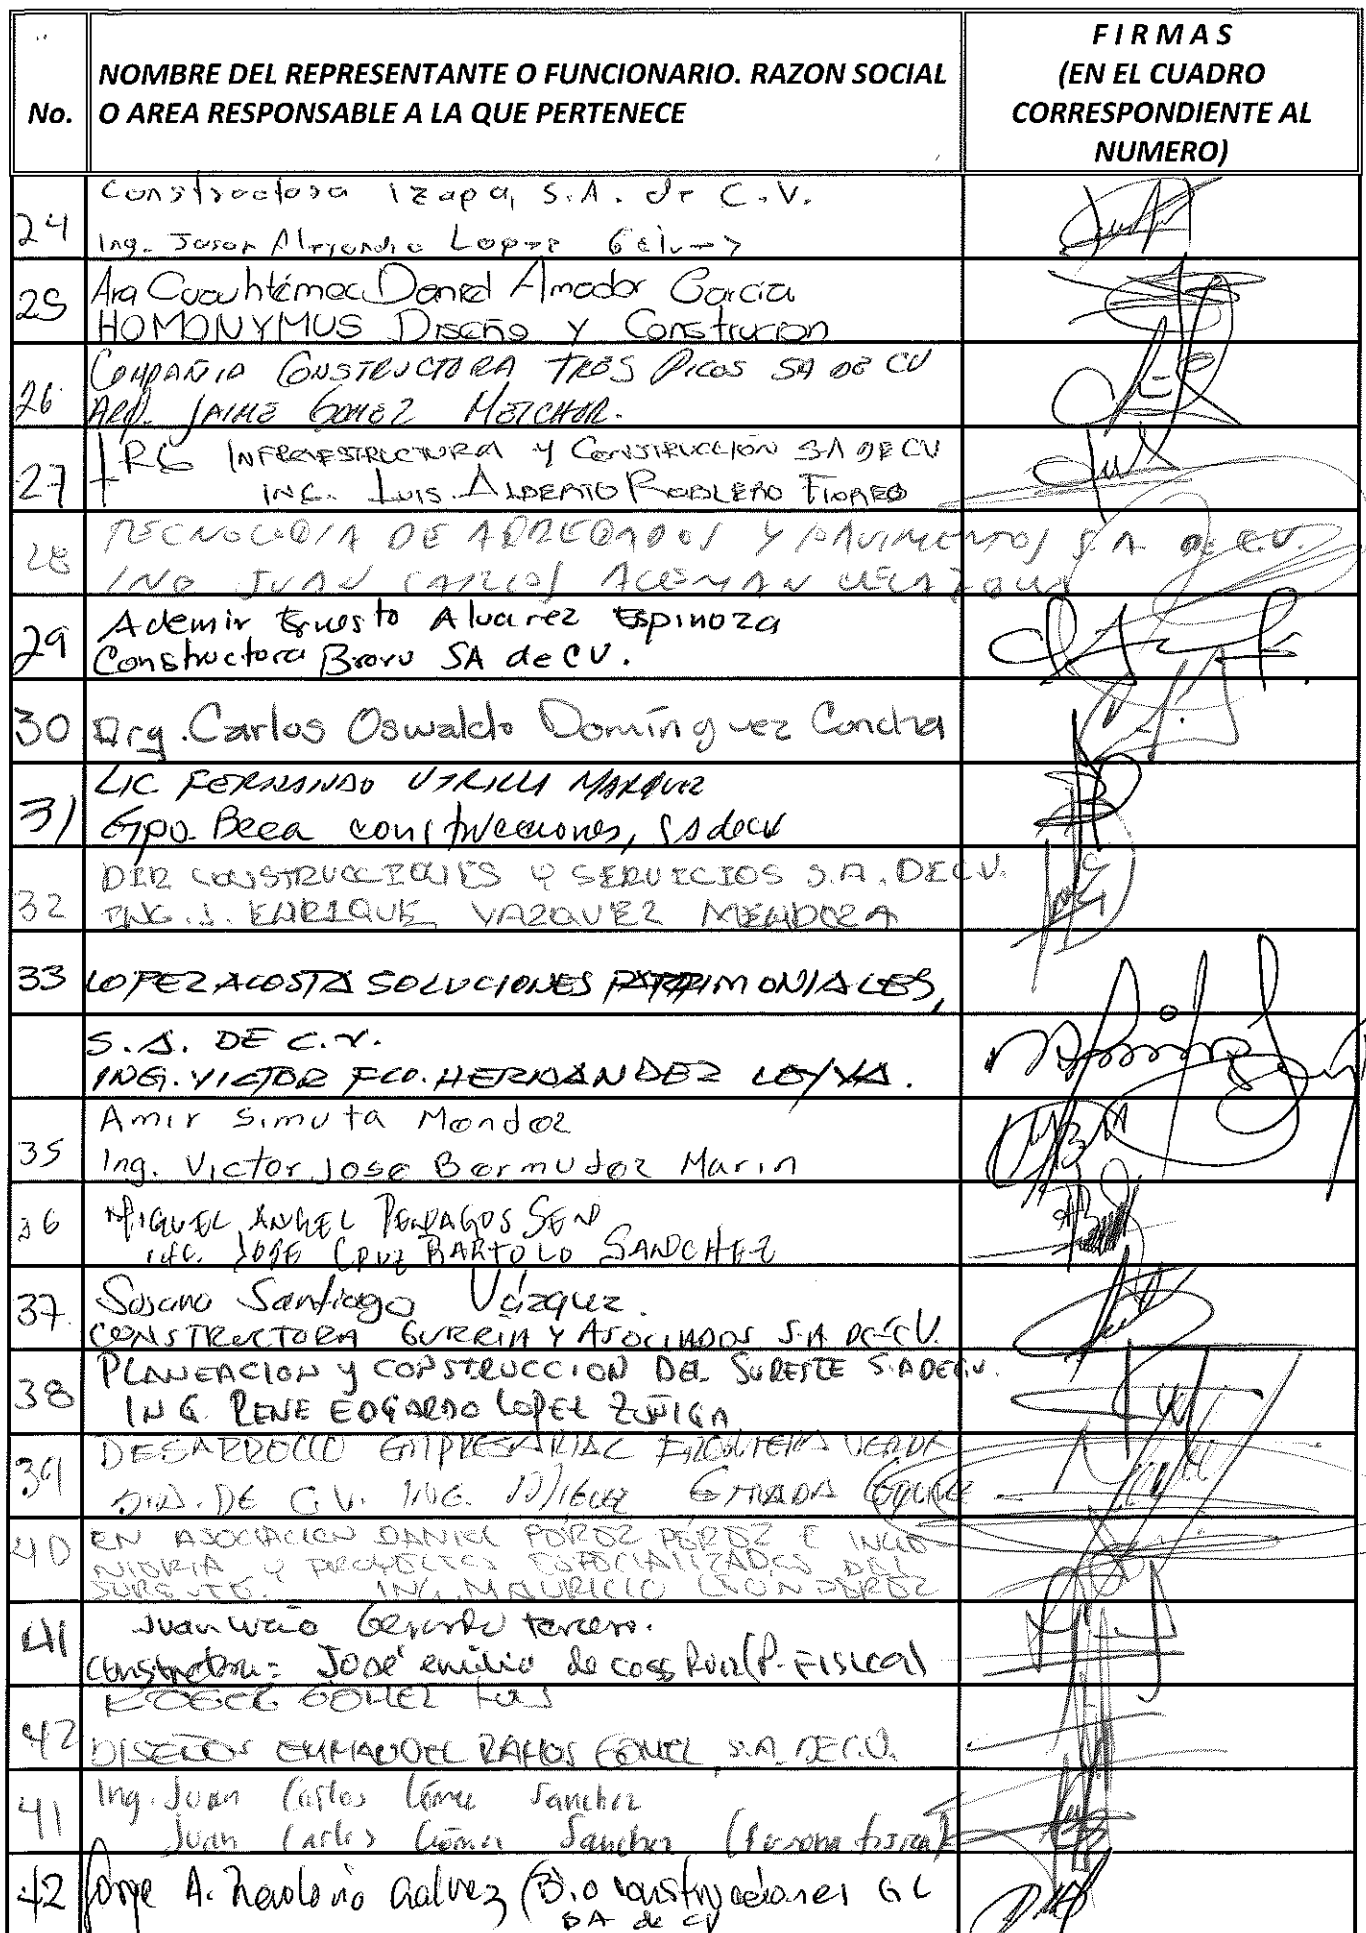 No.
NOMBRE DEL REPRESENTANTE O FUNCIONARIO. RAZON SOCIAL
O AREA RESPONSABLE A LA QUE PERTENECE
FIRMAS
(EN EL CUADRO
CORRESPONDIENTE AL
NUMERO)
24
Constructora Izapa, S.A. de C.V.
Ing. Alejandro Lopez
25
Arq Cuauhtémoc Daniel Amador García
HOMONYMUS Diseño y Construcion
26
COMPAÑIA CONSTRUCTORA TRES PICOS SA DE CV
ARQ. JAIME GOMEZ MELCHOR.
27
INFRAESTRUCTURA Y CONSTRUCCIÓN SA DE CV
ING. LUIS ALBERTO ROBLERO FLORES
28
TECNOLOGIA DE AGREGADOS Y PAVIMENTOS S.A. DE C.V.
ING JUAN CARLOS ALEMAN VELAZQUEZ
29
Ademir Ernesto Alvarez Espinoza
Constructora Bravu SA de CV.
30
Arq. Carlos Oswaldo Domínguez Concha
31
LIC FERNANDO UTRILLA MARQUEZ
Gpo. Beea construcciones, SA de CV
32
DIR CONSTRUCCIONES Y SERVICIOS S.A. DE C.V.
ING. J. ENRIQUE VAZQUEZ MENDOZA
33
LOPEZ ACOSTA SOLUCIONES PATRIMONIALES,
S.A. DE C.V.
ING. VICTOR FCO. HERNANDEZ LOYA.
35
Amir Simuta Mendoz
Ing. Victor Jose Bermudez Marin
36
MIGUEL ANGEL PENAGOS
JOSE CRUZ BARTOLO SANCHEZ
37
Santiago Vázquez.
CONSTRUCTORA GURRIA Y ASOCIADOS S.A DE C.V.
38
PLANEACION Y CONSTRUCCION DEL SURESTE S.A DE C.V.
ING. RENE EDGARDO LOPEZ ZUÑIGA
39
DESARROLLO EMPRESARIAL FRONTERA VERDE
S.A. DE C.V. ING. ESTRADA
40
EN ASOCIACION DANIEL PÉREZ PÉREZ E INGE
NIERIA Y PROYECTOS ESPECIALIZADOS DEL
SURESTE. ING. MAURICIO LEON PEREZ
41
Juan
Constructora: José emilio de coss Ruiz (P. FISICA)
42
ROGER GOMEZ
DISEÑOS EMMANUEL RAMOS GOMEZ, S.A. DE C.V.
41
Ing. Juan Carlos Gómez Sanchez
Juan Carlos Gómez Sanchez (Persona física)
42
Jorge A. Galvez (Bio construcciones GL
SA de CV